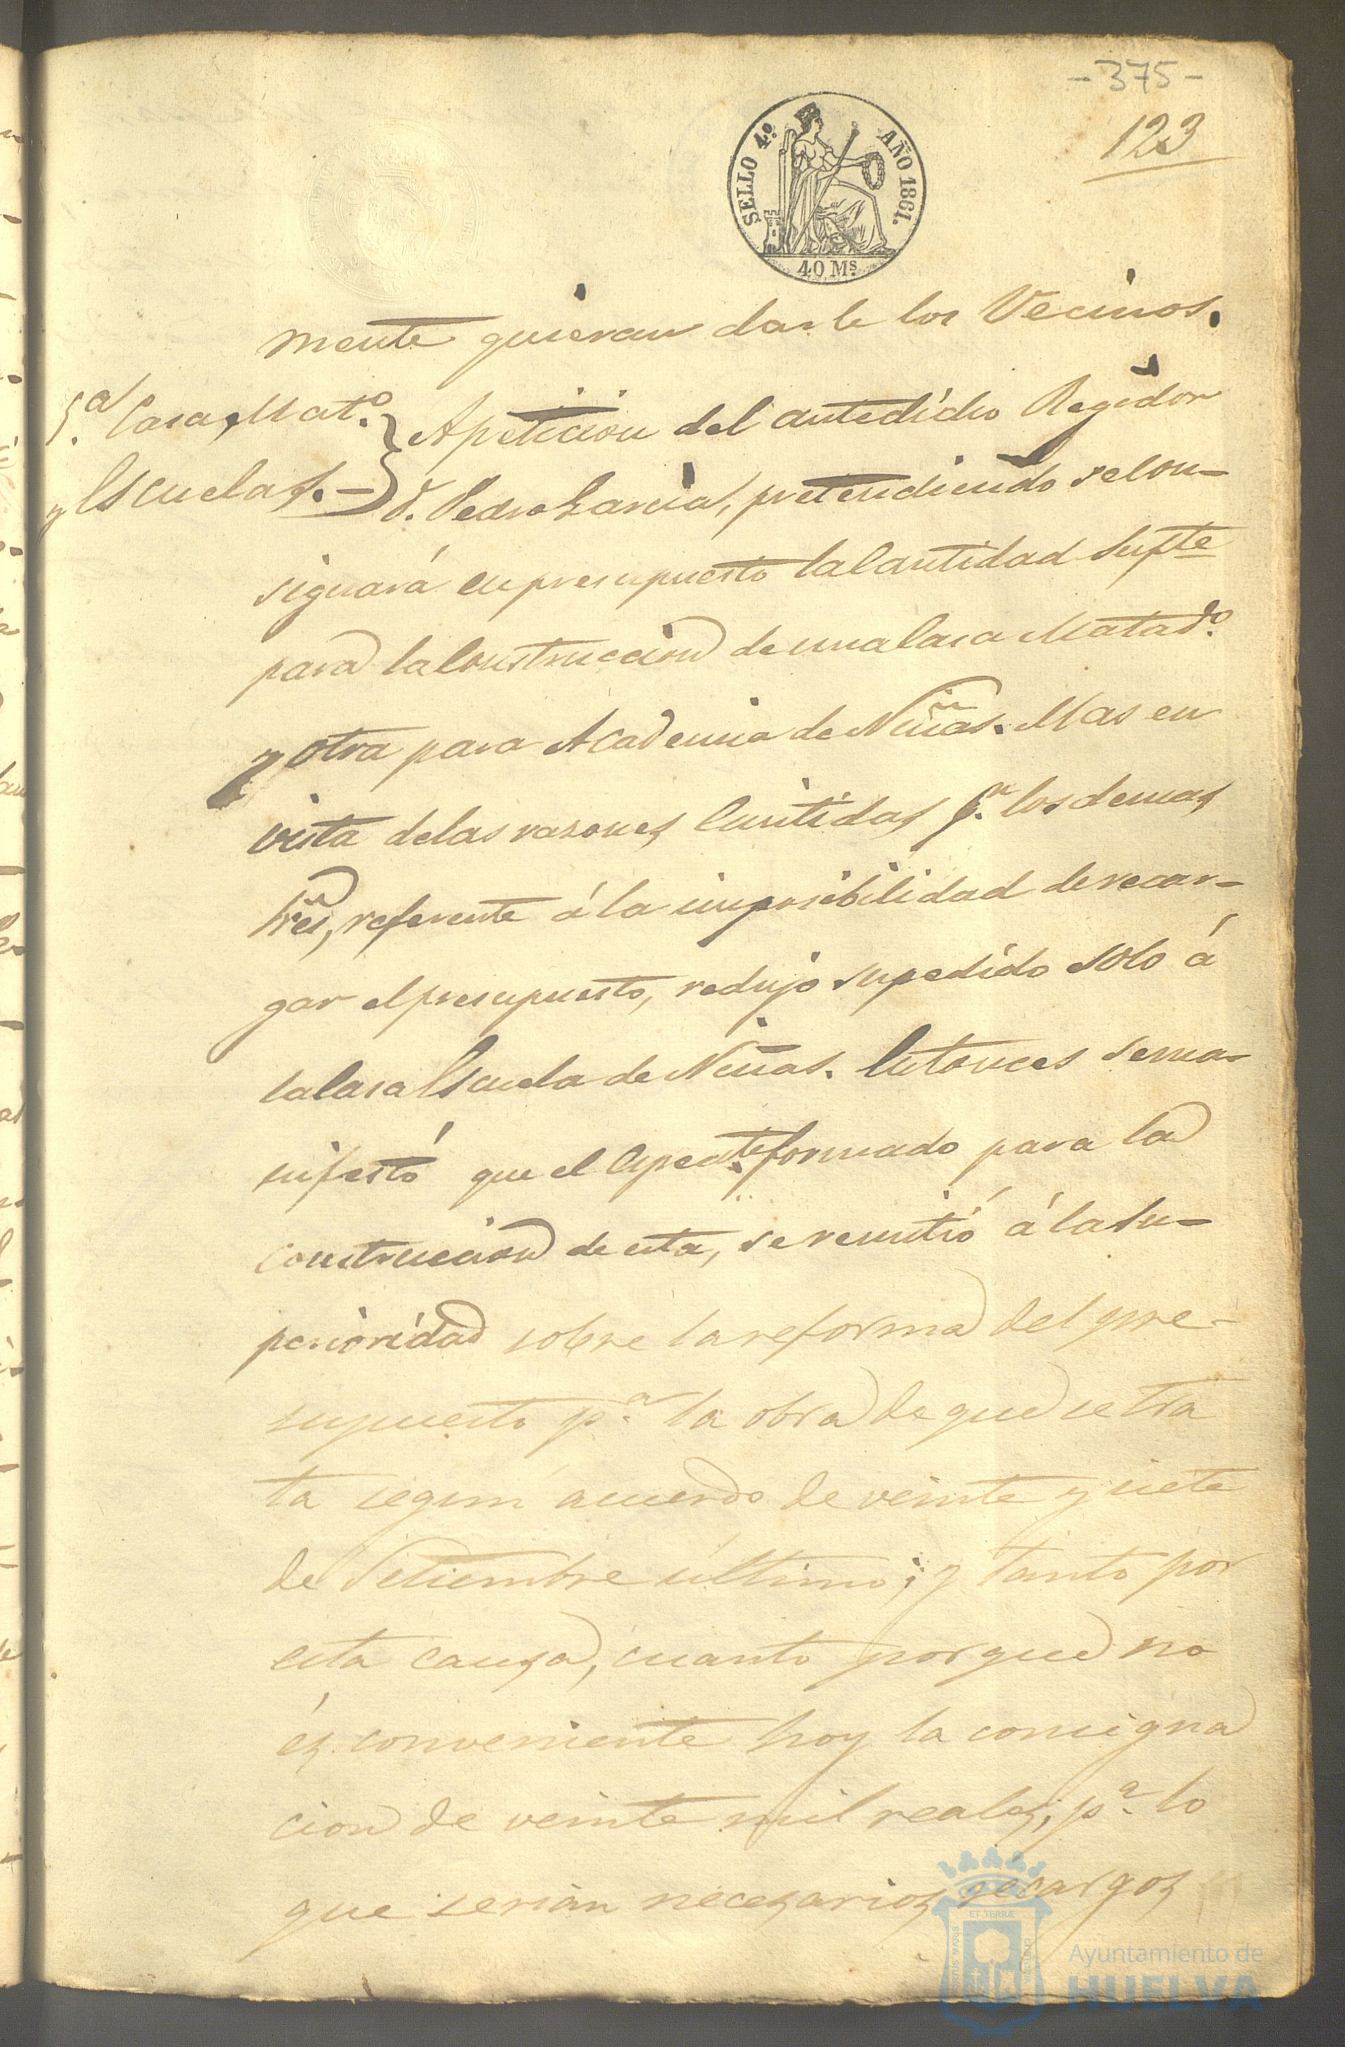 -375-
123
SELLO 4º. AÑO 1861.
40 Ms.
mente quieran darle los Vecinos.
5.a Casa, Matº.
y Escuelas.-
A peticion del antedicho Regidor
D. Pedro Garcia, pretendiendo se con-
signará en presupuesto la Cantidad sufte
para la Construccion de una Casa Matadº.
y otra para Academia de Niñas. Mas en
vista de las razones emitidas pr. los demas
Sres, referente á la imposibilidad de recar-
gar el presupuesto, redujo su pedido solo á
la Casa Escuela de Niñas. Entonces se ma-
nifestó que el Expedte. formado para la
construccion de esta, se remitió á la Su-
perioridad sobre la reforma del pre-
supuesto pa. la obra de que se tra
ta segun acuerdo de veinte y siete
de Setiembre último; y tanto por
esta causa, cuanto porque no
és conveniente hoy la consigna
cion de veinte mil reales, pa. lo
que serian necesarios recargos
Ayuntamiento de
HUELVA